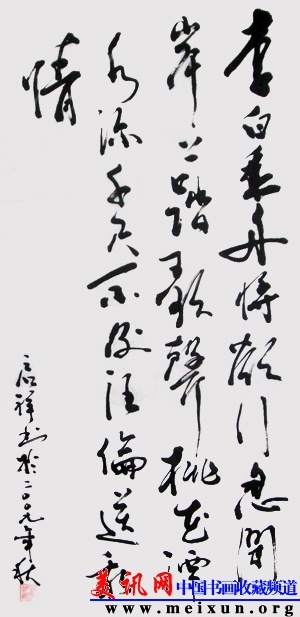 李白乘舟将欲行忽聞
岸上踏歌聲桃花潭
水深千尺不及汪倫送我
情
祥书於二〇〇九年秋
美讯网 中国书画收藏频道
www.meixun.org